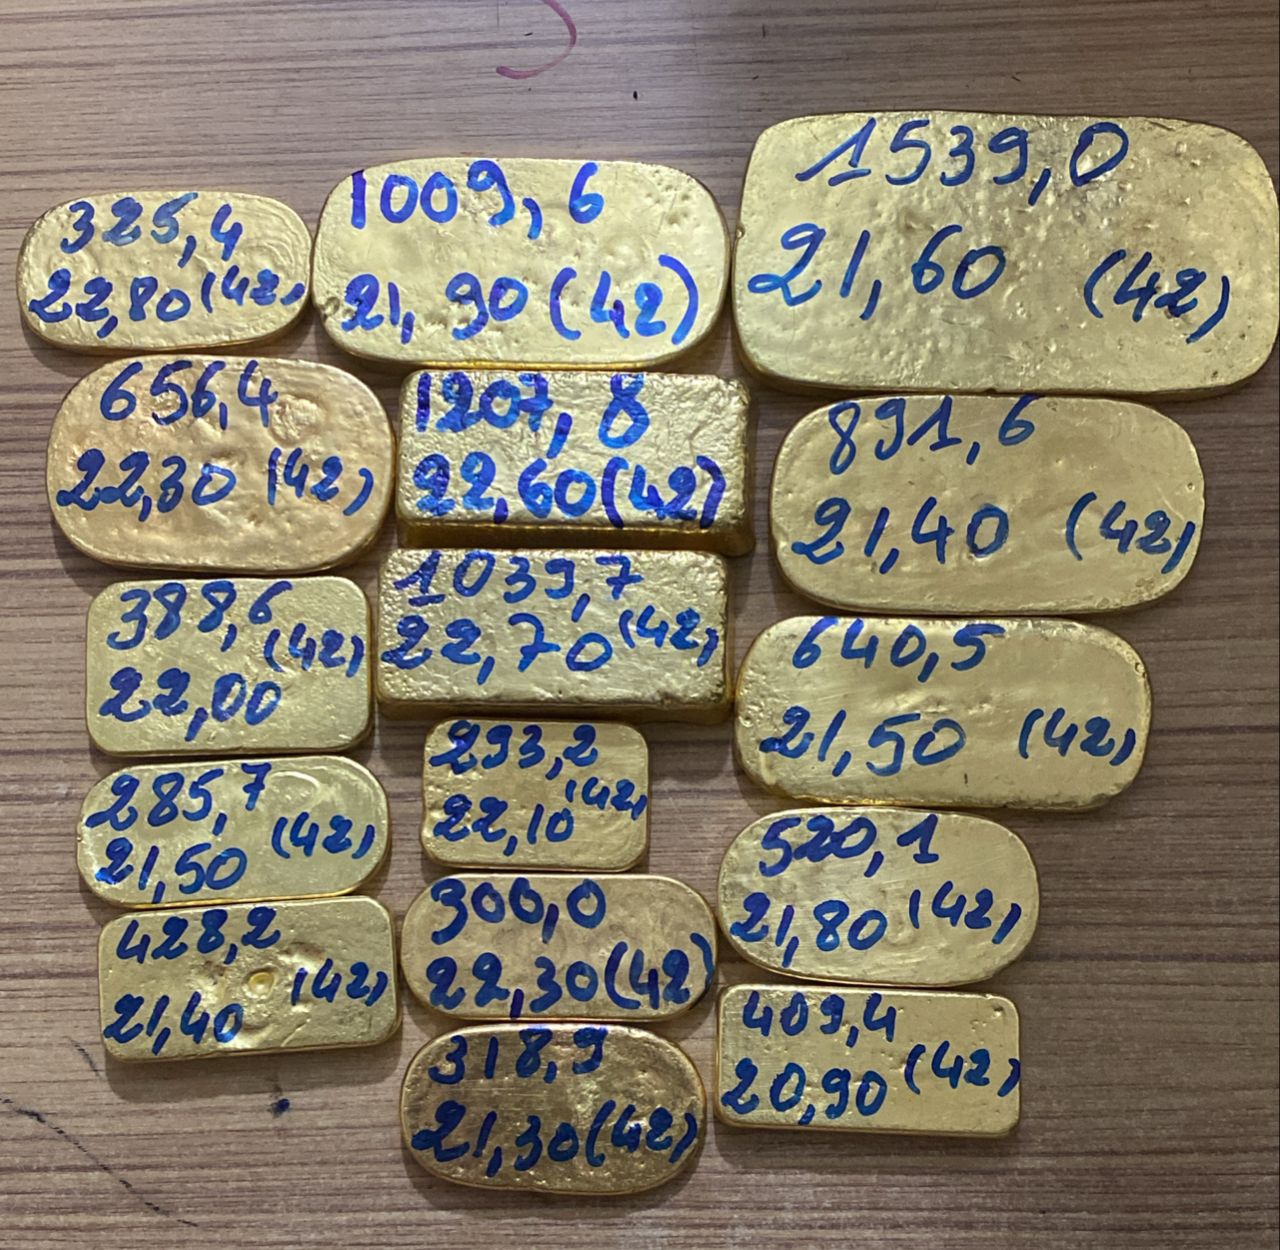 325,4
22,80 (42)
1009,6
21,90 (42)
1539,0
21,60 (42)
656,4
22,30 (42)
1207,8
22,60 (42)
891,6
21,40 (42)
388,6
(42)
22,00
1039,7
22,70 (42)
640,5
21,50 (42)
285,7
21,50 (42)
293,2
(42)
22,10
520,1
21,80 (42)
428,2
(42)
21,40
300,0
22,30 (42)
409,4
20,90 (42)
318,9
21,30 (42)